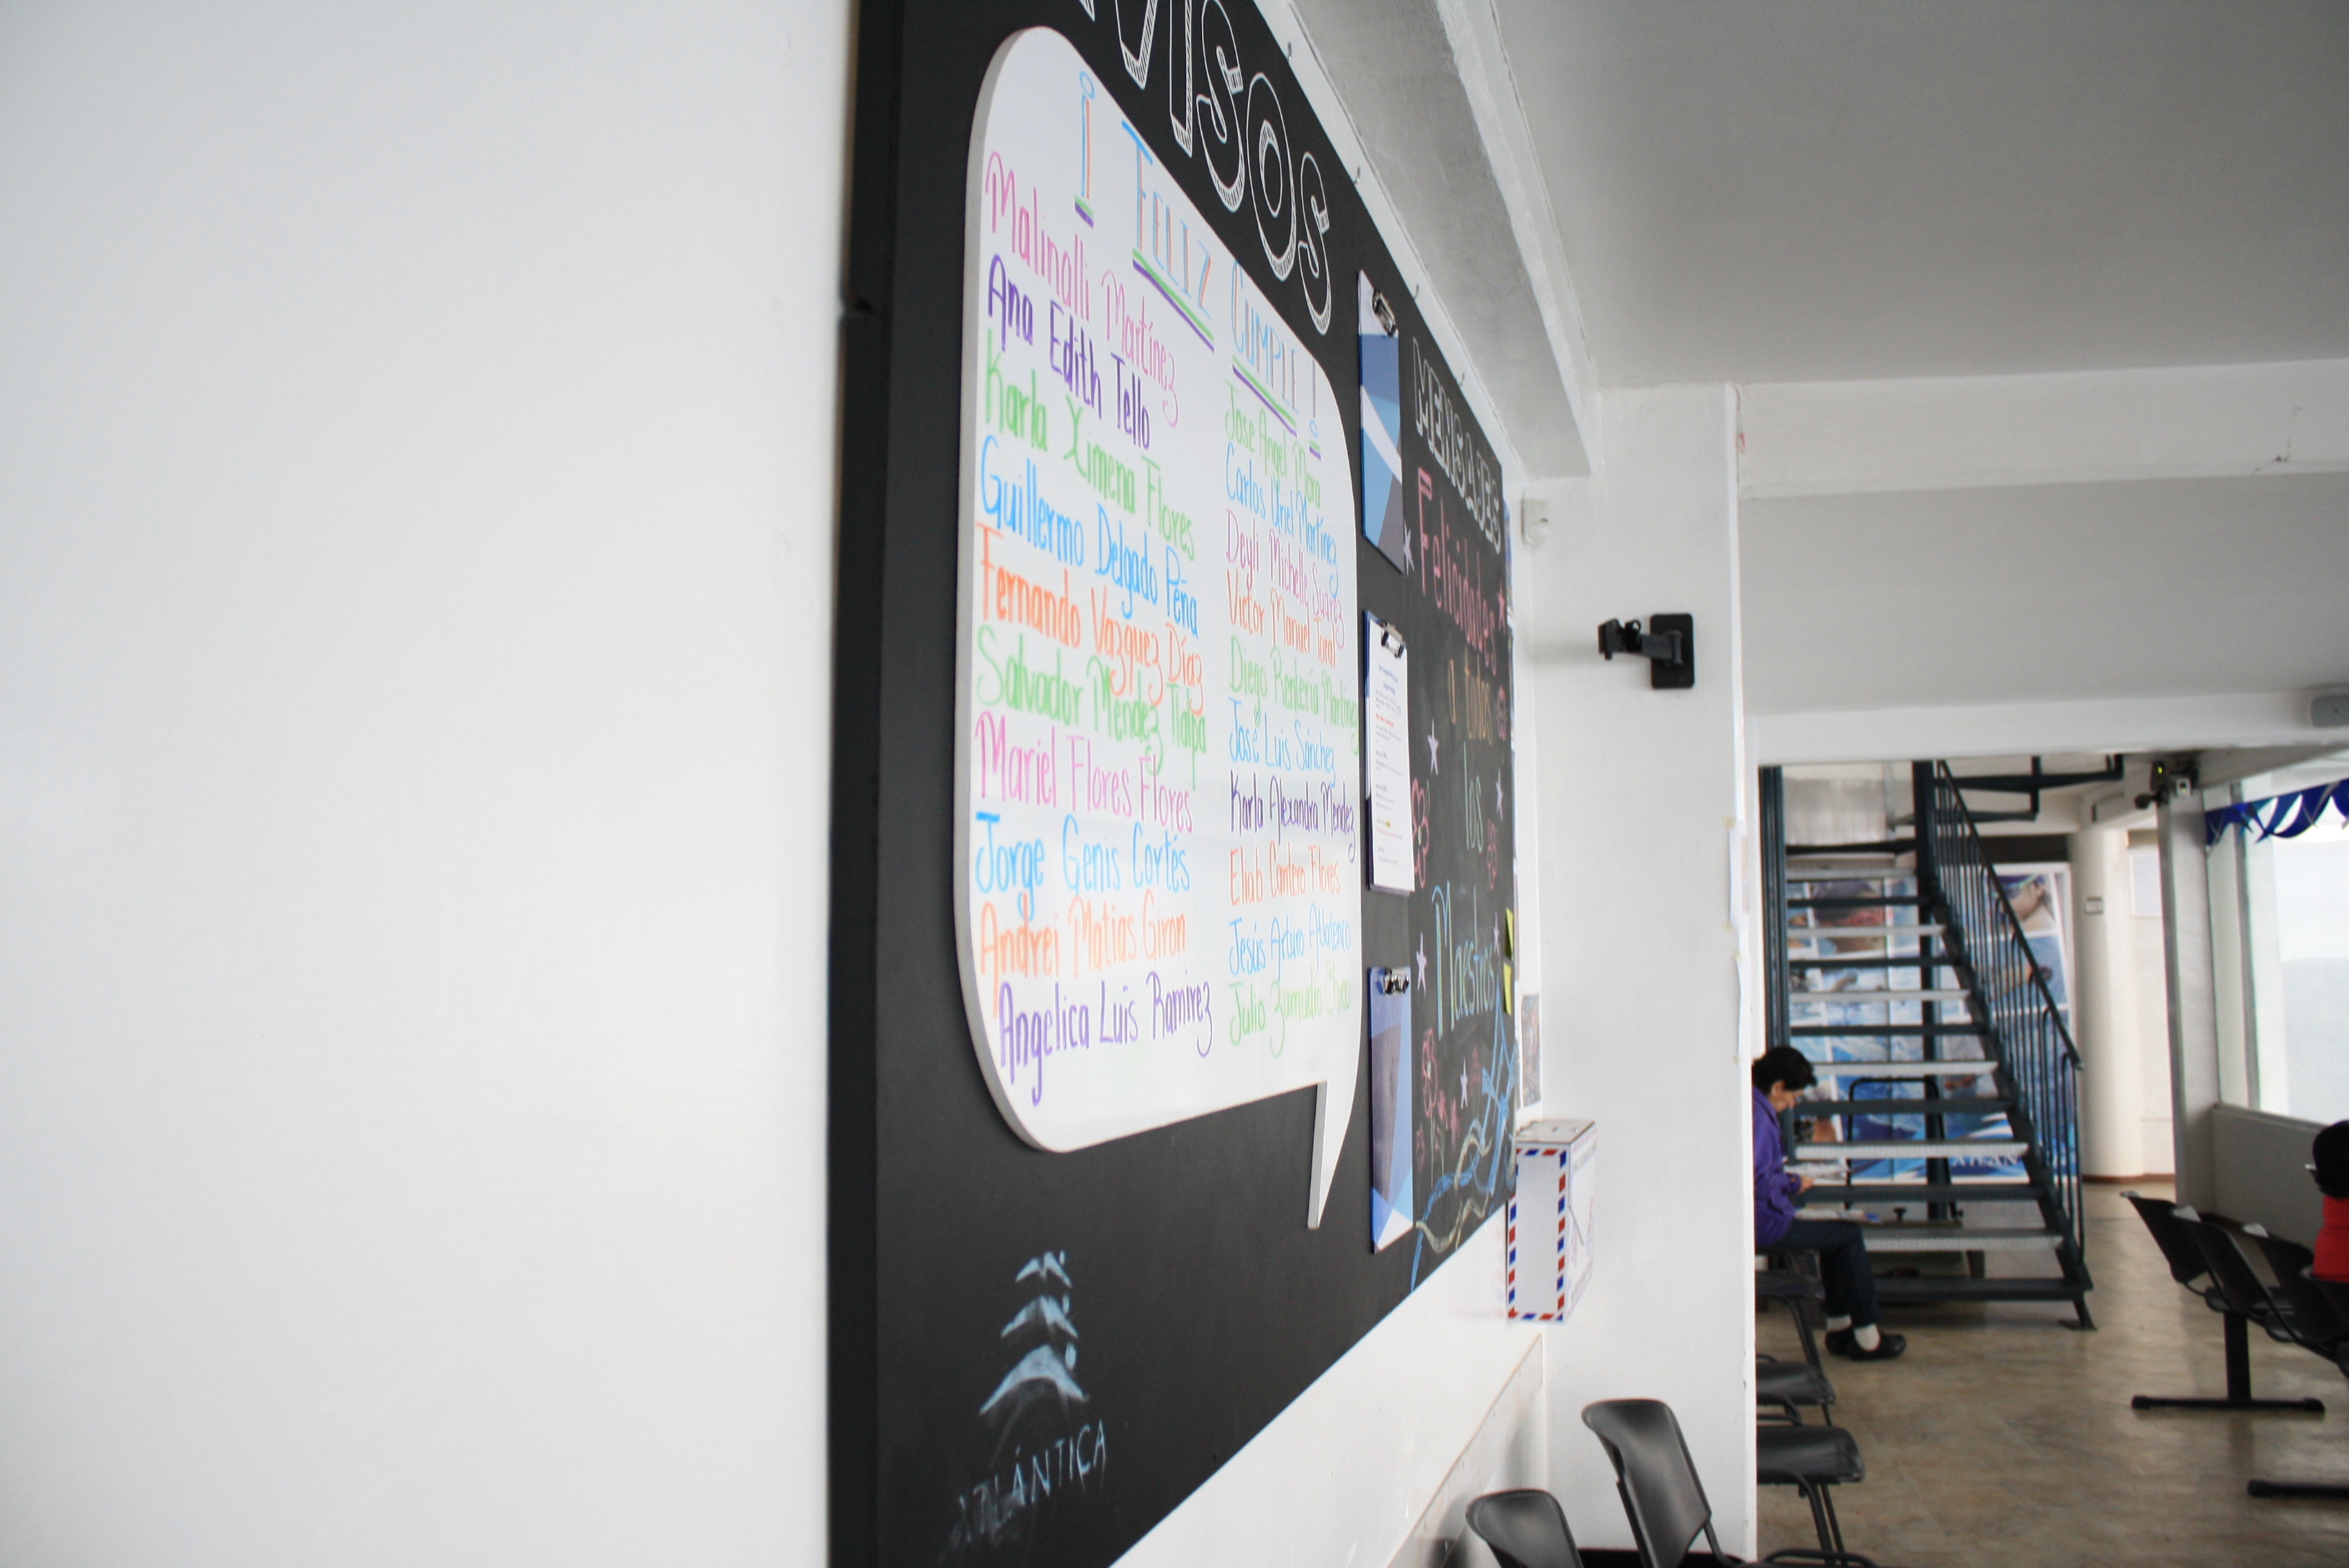 VISOS
¡FELIZ CUMPLE!
Malinalli Martínez
Ana Edith Tello
Karla Ximena Flores
Guillermo Delgado Peña
Fernando Vazquez Díaz
Salvador Méndez Tlalpa
Mariel Flores Flores
Jorge Genis Cortés
Andrei Matias Giron
Angelica Luis Ramirez
Jose Angel Mora
Carlos Uriel Martínez
Deyli Michelle Suarez
Victor Manuel Toral
Diego Rentería Martínez
José Luis Sánchez
Karla Alexandra Mendez
Eliab Cantero Flores
Jesús Arturo
Julio Zamudio
MENSAJES
Felicidades
a todos
los
Maestros
ATLÁNTICA